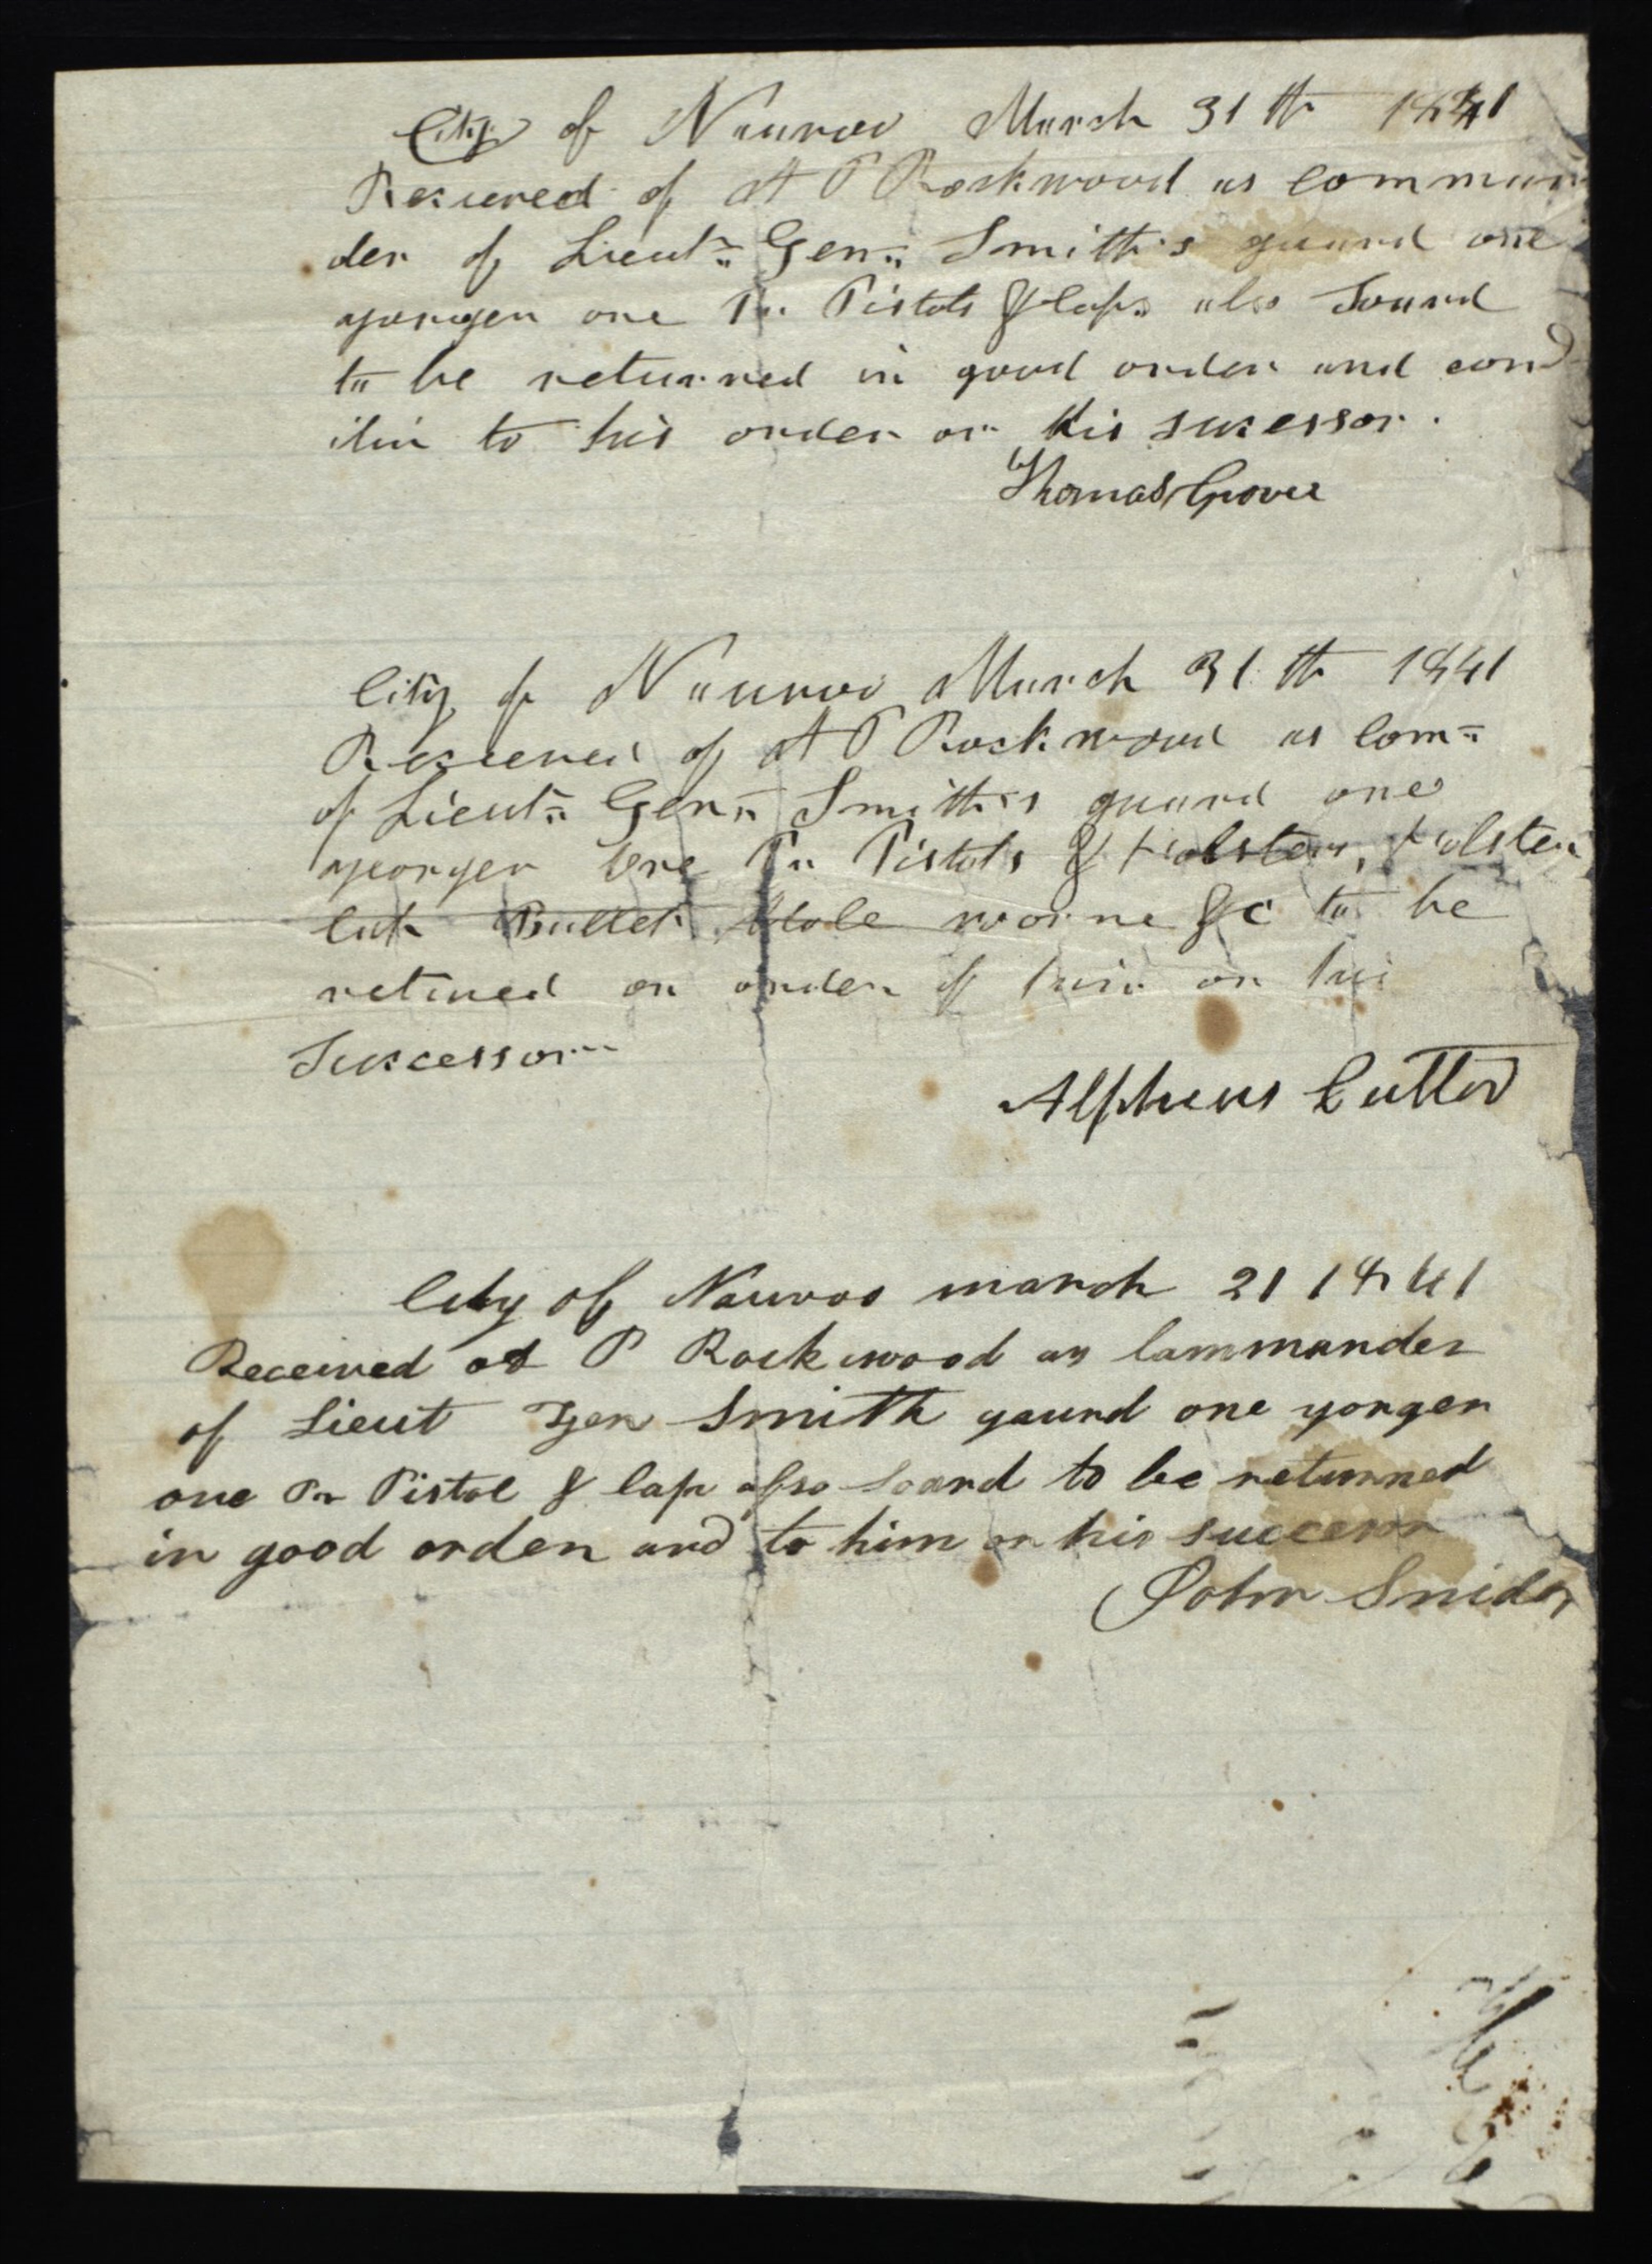 City of Nauvoo March 31th 1841
Receved of A P Rockwood as comman
der of Lieut. Gen. Smith's guard one
yorger one Pr. Pistols & Caps also Sourd
to be returned in good order and cond
itin to his order or his sucessor.
Thomas Grover
City of Nauvoo March 31th 1841
Receved of A P Rockwood as Com.
of Lieut. Gen. Smith's guard one
yorger One Pr. Pistols & Holsters, Holster
worne &c to be
returned on order of him or his
Suxcessor
Alpheus Cutler
City of Nauvoo march 21 1841
Received A P Rockwood as Commander
of Lieut Gen Smith gaurd one yorger
one Pr Pistol & Cap also Soard to be returned
in good order and to him or his succesor
John Snider